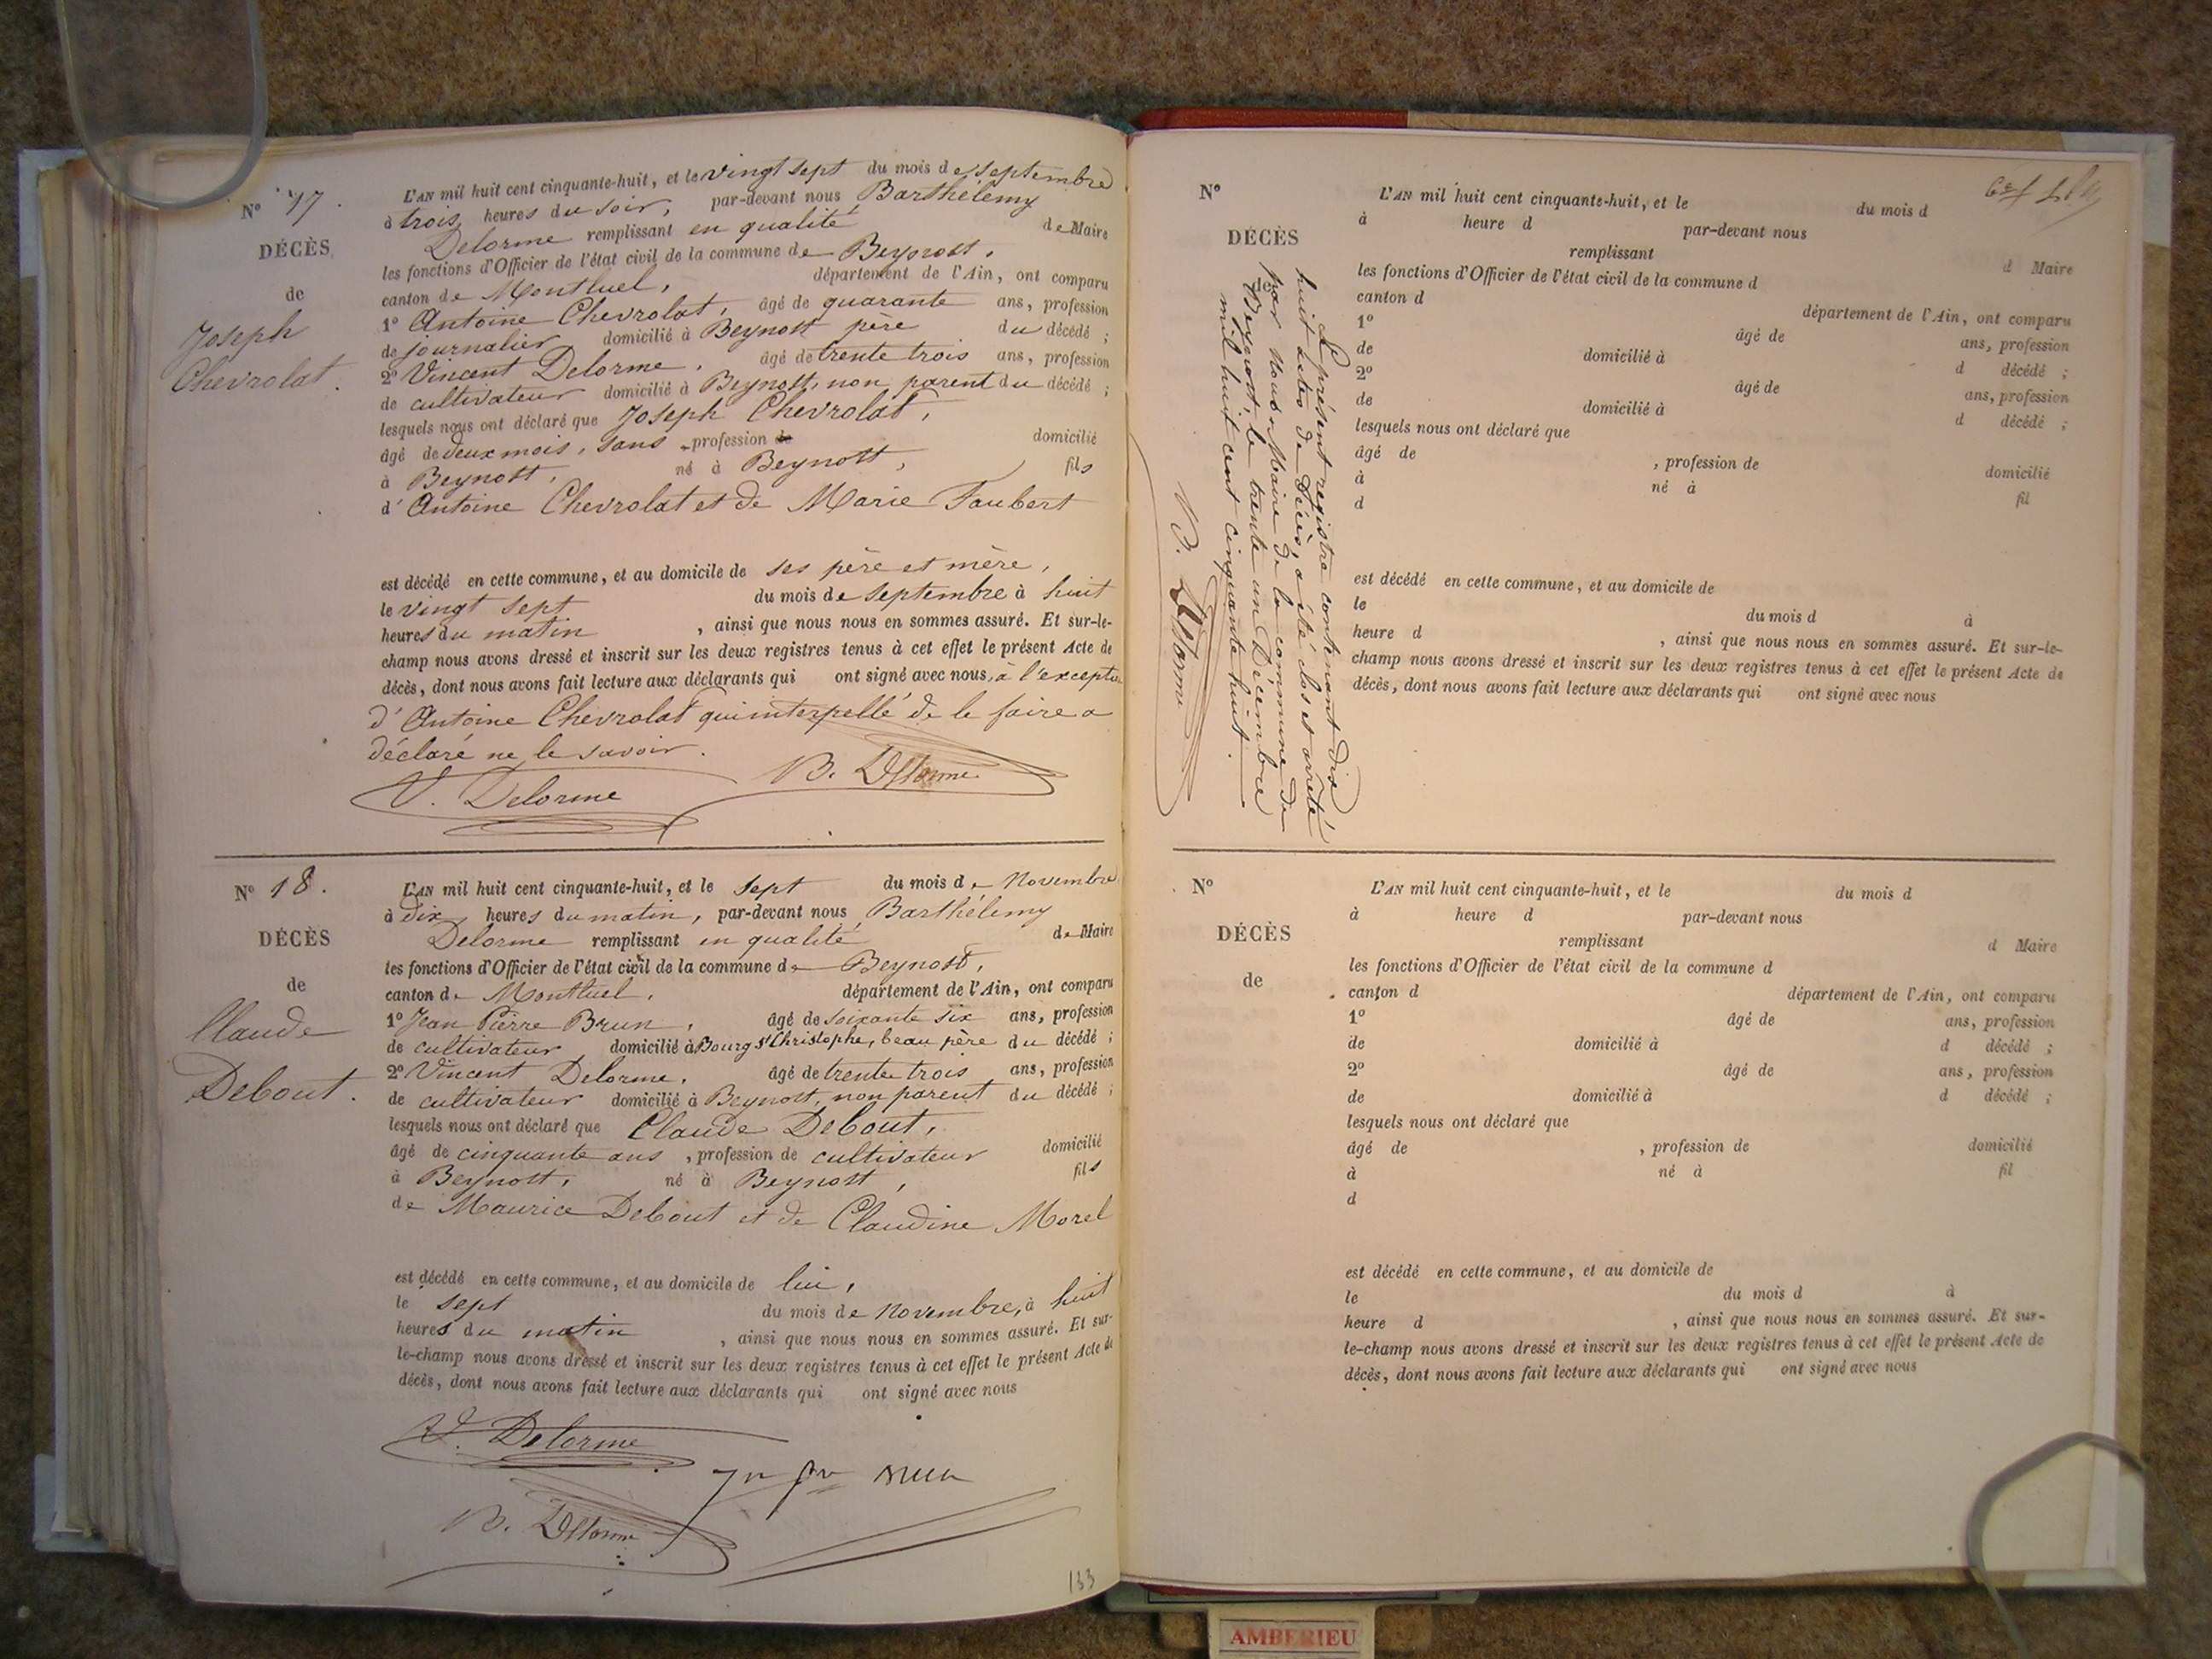 N° 17.
DÉCÈS
de
Joseph
Chevrolat.
L'AN mil huit cent cinquante-huit, et le vingt sept du mois de septembre
à trois heures du soir, par-devant nous Barthélemy
Delorme remplissant en qualité de Maire
les fonctions d'Officier de l'état civil de la commune de Beynost,
canton de Montluel, département de l'Ain, ont comparu
1° Antoine Chevrolat, âgé de quarante ans, profession
de journalier domicilié à Beynost père du décédé ;
2° Vincent Delorme, âgé de trente trois ans, profession
de cultivateur domicilié à Beynost, non parent du décédé ;
lesquels nous ont déclaré que Joseph Chevrolat,
âgé de deux mois, sans profession de domicilié
à Beynost, né à Beynost, fils
d'Antoine Chevrolat et de Marie Faubert
est décédé en cette commune, et au domicile de ses père et mère,
le vingt sept du mois de septembre à huit
heures du matin , ainsi que nous nous en sommes assuré. Et sur-le-
champ nous avons dressé et inscrit sur les deux registres tenus à cet effet le présent Acte de
décès, dont nous avons fait lecture aux déclarants qui ont signé avec nous, à l'exception
d'Antoine Chevrolat qui interpellé de le faire a
déclaré ne le savoir.
V. Delorme B. Delorme
N° 18.
DÉCÈS
de
Claude
Debout.
L'AN mil huit cent cinquante-huit, et le sept du mois de Novembre
à dix heures du matin, par-devant nous Barthélemy
Delorme remplissant en qualité de Maire
les fonctions d'Officier de l'état civil de la commune de Beynost,
canton de Montluel, département de l'Ain, ont comparu
1° Jean Pierre Brun, âgé de soixante six ans, profession
de cultivateur domicilié à Bourg St Christophe, beau père du décédé ;
2° Vincent Delorme, âgé de trente trois ans, profession
de cultivateur domicilié à Beynost, non parent du décédé ;
lesquels nous ont déclaré que Claude Debout,
âgé de cinquante ans , profession de cultivateur domicilié
à Beynost, né à Beynost, fils
de Maurice Debout et de Claudine Morel
est décédé en cette commune, et au domicile de lui,
le sept du mois de novembre, à huit
heures du matin , ainsi que nous nous en sommes assuré. Et sur-
le-champ nous avons dressé et inscrit sur les deux registres tenus à cet effet le présent Acte de
décès, dont nous avons fait lecture aux déclarants qui ont signé avec nous
V. Delorme
Jn Pre Brun
B. Delorme
133
N°
DÉCÈS
de
Le présent registre contenant dix
huit actes de Décès, a été clos et arrêté
par nous Maire de la commune de
Beynost, le trente un Décembre
mil huit cent cinquante huit.
B. Delorme
L'AN mil huit cent cinquante-huit, et le du mois d
à heure d par-devant nous
remplissant d Maire
les fonctions d'Officier de l'état civil de la commune d
canton d département de l'Ain, ont comparu
1° âgé de ans, profession
de domicilié à d décédé ;
2° âgé de ans, profession
de domicilié à d décédé ;
lesquels nous ont déclaré que
âgé de , profession de domicilié
à né à fil
d
est décédé en cette commune, et au domicile de
le du mois d à
heure d , ainsi que nous nous en sommes assuré. Et sur-le-
champ nous avons dressé et inscrit sur les deux registres tenus à cet effet le présent Acte de
décès, dont nous avons fait lecture aux déclarants qui ont signé avec nous
N°
DÉCÈS
de
L'AN mil huit cent cinquante-huit, et le du mois d
à heure d par-devant nous
remplissant d Maire
les fonctions d'Officier de l'état civil de la commune d
canton d département de l'Ain, ont comparu
1° âgé de ans, profession
de domicilié à d décédé ;
2° âgé de ans, profession
de domicilié à d décédé ;
lesquels nous ont déclaré que
âgé de , profession de domicilié
à né à fil
d
est décédé en cette commune, et au domicile de
le du mois d à
heure d , ainsi que nous nous en sommes assuré. Et sur-
le-champ nous avons dressé et inscrit sur les deux registres tenus à cet effet le présent Acte de
décès, dont nous avons fait lecture aux déclarants qui ont signé avec nous
AMBERIEU